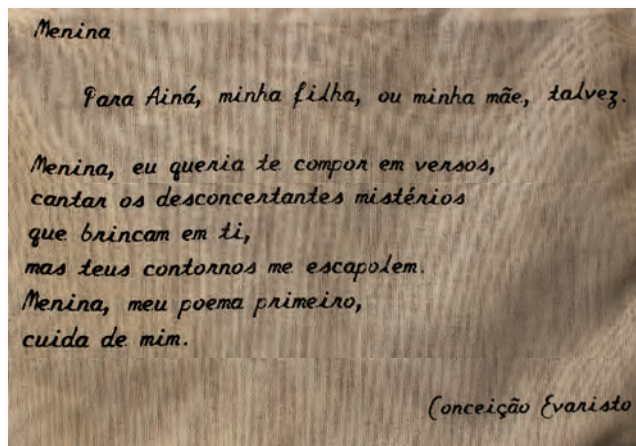 Menina
Para Ainá, minha filha, ou minha mãe, talvez.
Menina, eu queria te compor em versos,
cantar os desconcertantes mistérios
que brincam em ti,
mas teus contornos me escapolem.
Menina, meu poema primeiro,
cuida de mim.
Conceição Evaristo